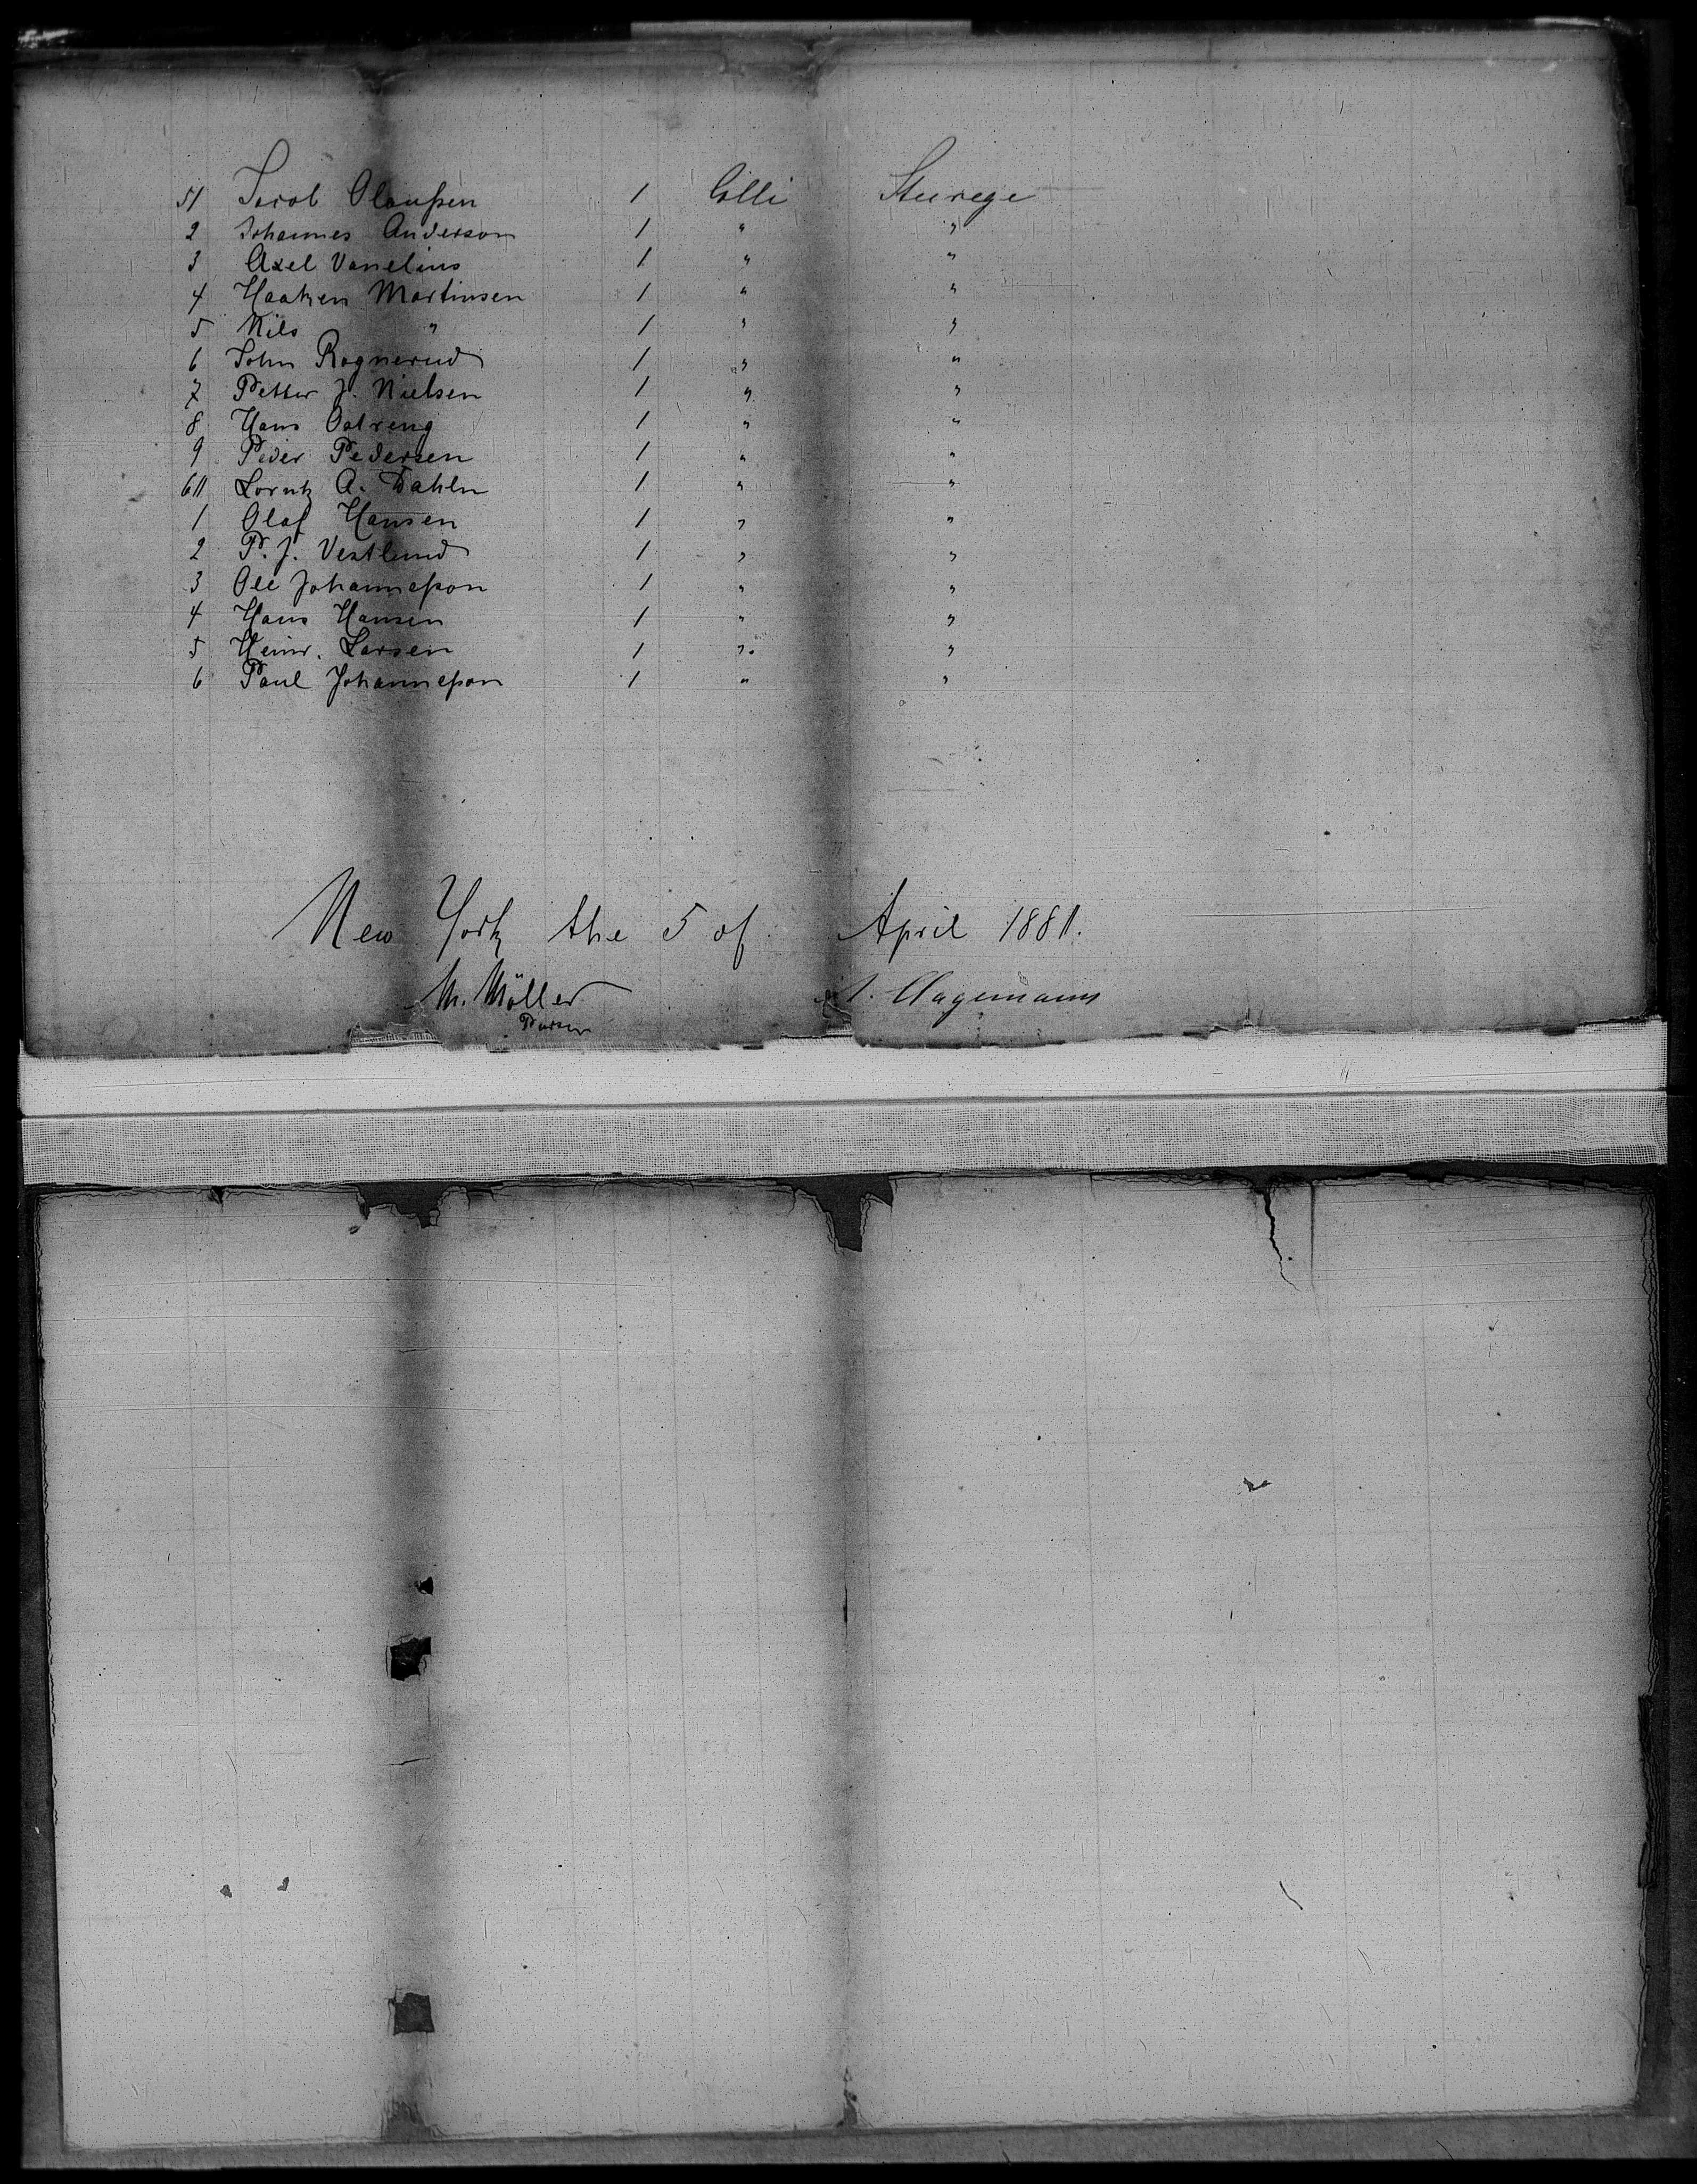 51 Jacob Olaußen 1 Colli Steurege
2 Johannes Anderson 1 " "
3 Axel Vanelius 1 " "
4 Haaken Martinsen 1 " "
5 Nils " 1 " "
6 John Rognerud 1 " "
7 Petter J. Nielsen 1 " "
8 Hans 1 " "
9 Peder Pedersen 1 " "
60 Lorntz A. Dahln 1 " "
1 Olaf Hansen 1 " "
2 P. J. Vestlund 1 " "
3 Ole Johanneßon 1 " "
4 Hans Hansen 1 " "
5 Heinr. Larsen 1 " "
6 Paul Johanneßon 1 " "
New York the 5 of April 1880.
M. Möller Hagemann
Purser